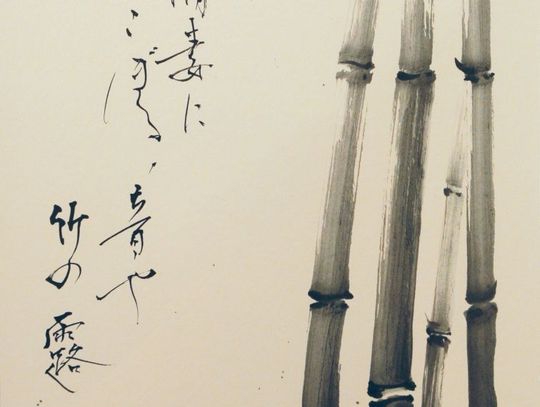 妻に
こぼるゝ音や
竹の露